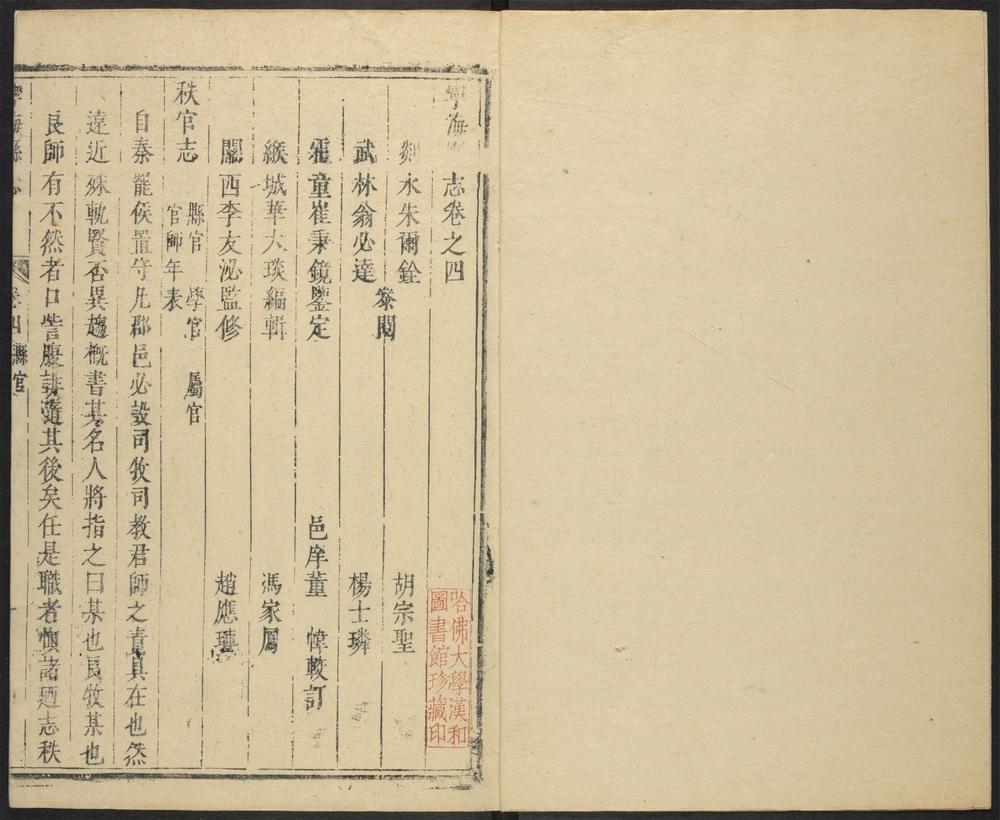 寧海 志卷之四
剡水朱爾銓 胡宗聖
武林翁必達 叅閱 楊士璘
霍童崔秉鏡鑒定 邑庠董 愇較訂
緱城華大琰編輯 馮家鳳
關西李友泌監修 趙應璉
秩官志 縣官 學官 屬官
官師年表
自秦罷侯置守凡郡邑必設司牧司教君師之責具在也然
遠近殊軌賢否異趨槪書其名人將指之曰某也良牧某也
良師有不然者口訾腹誹隨其後矣任是職者愼諸廼志秩
寧海縣志 卷四 縣官 一
哈佛大學漢和
圖書館珍藏印